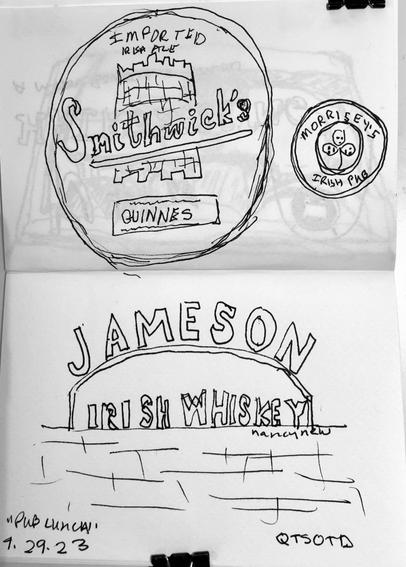 IMPORTED
IRISH ALE
Smithwick's
GUINNES
MORRISEY'S
IRISH PUB
JAMESON
IRISH WHISKEY
nancynew
"PUB LUNCH"
9.29.23
QTSOTD